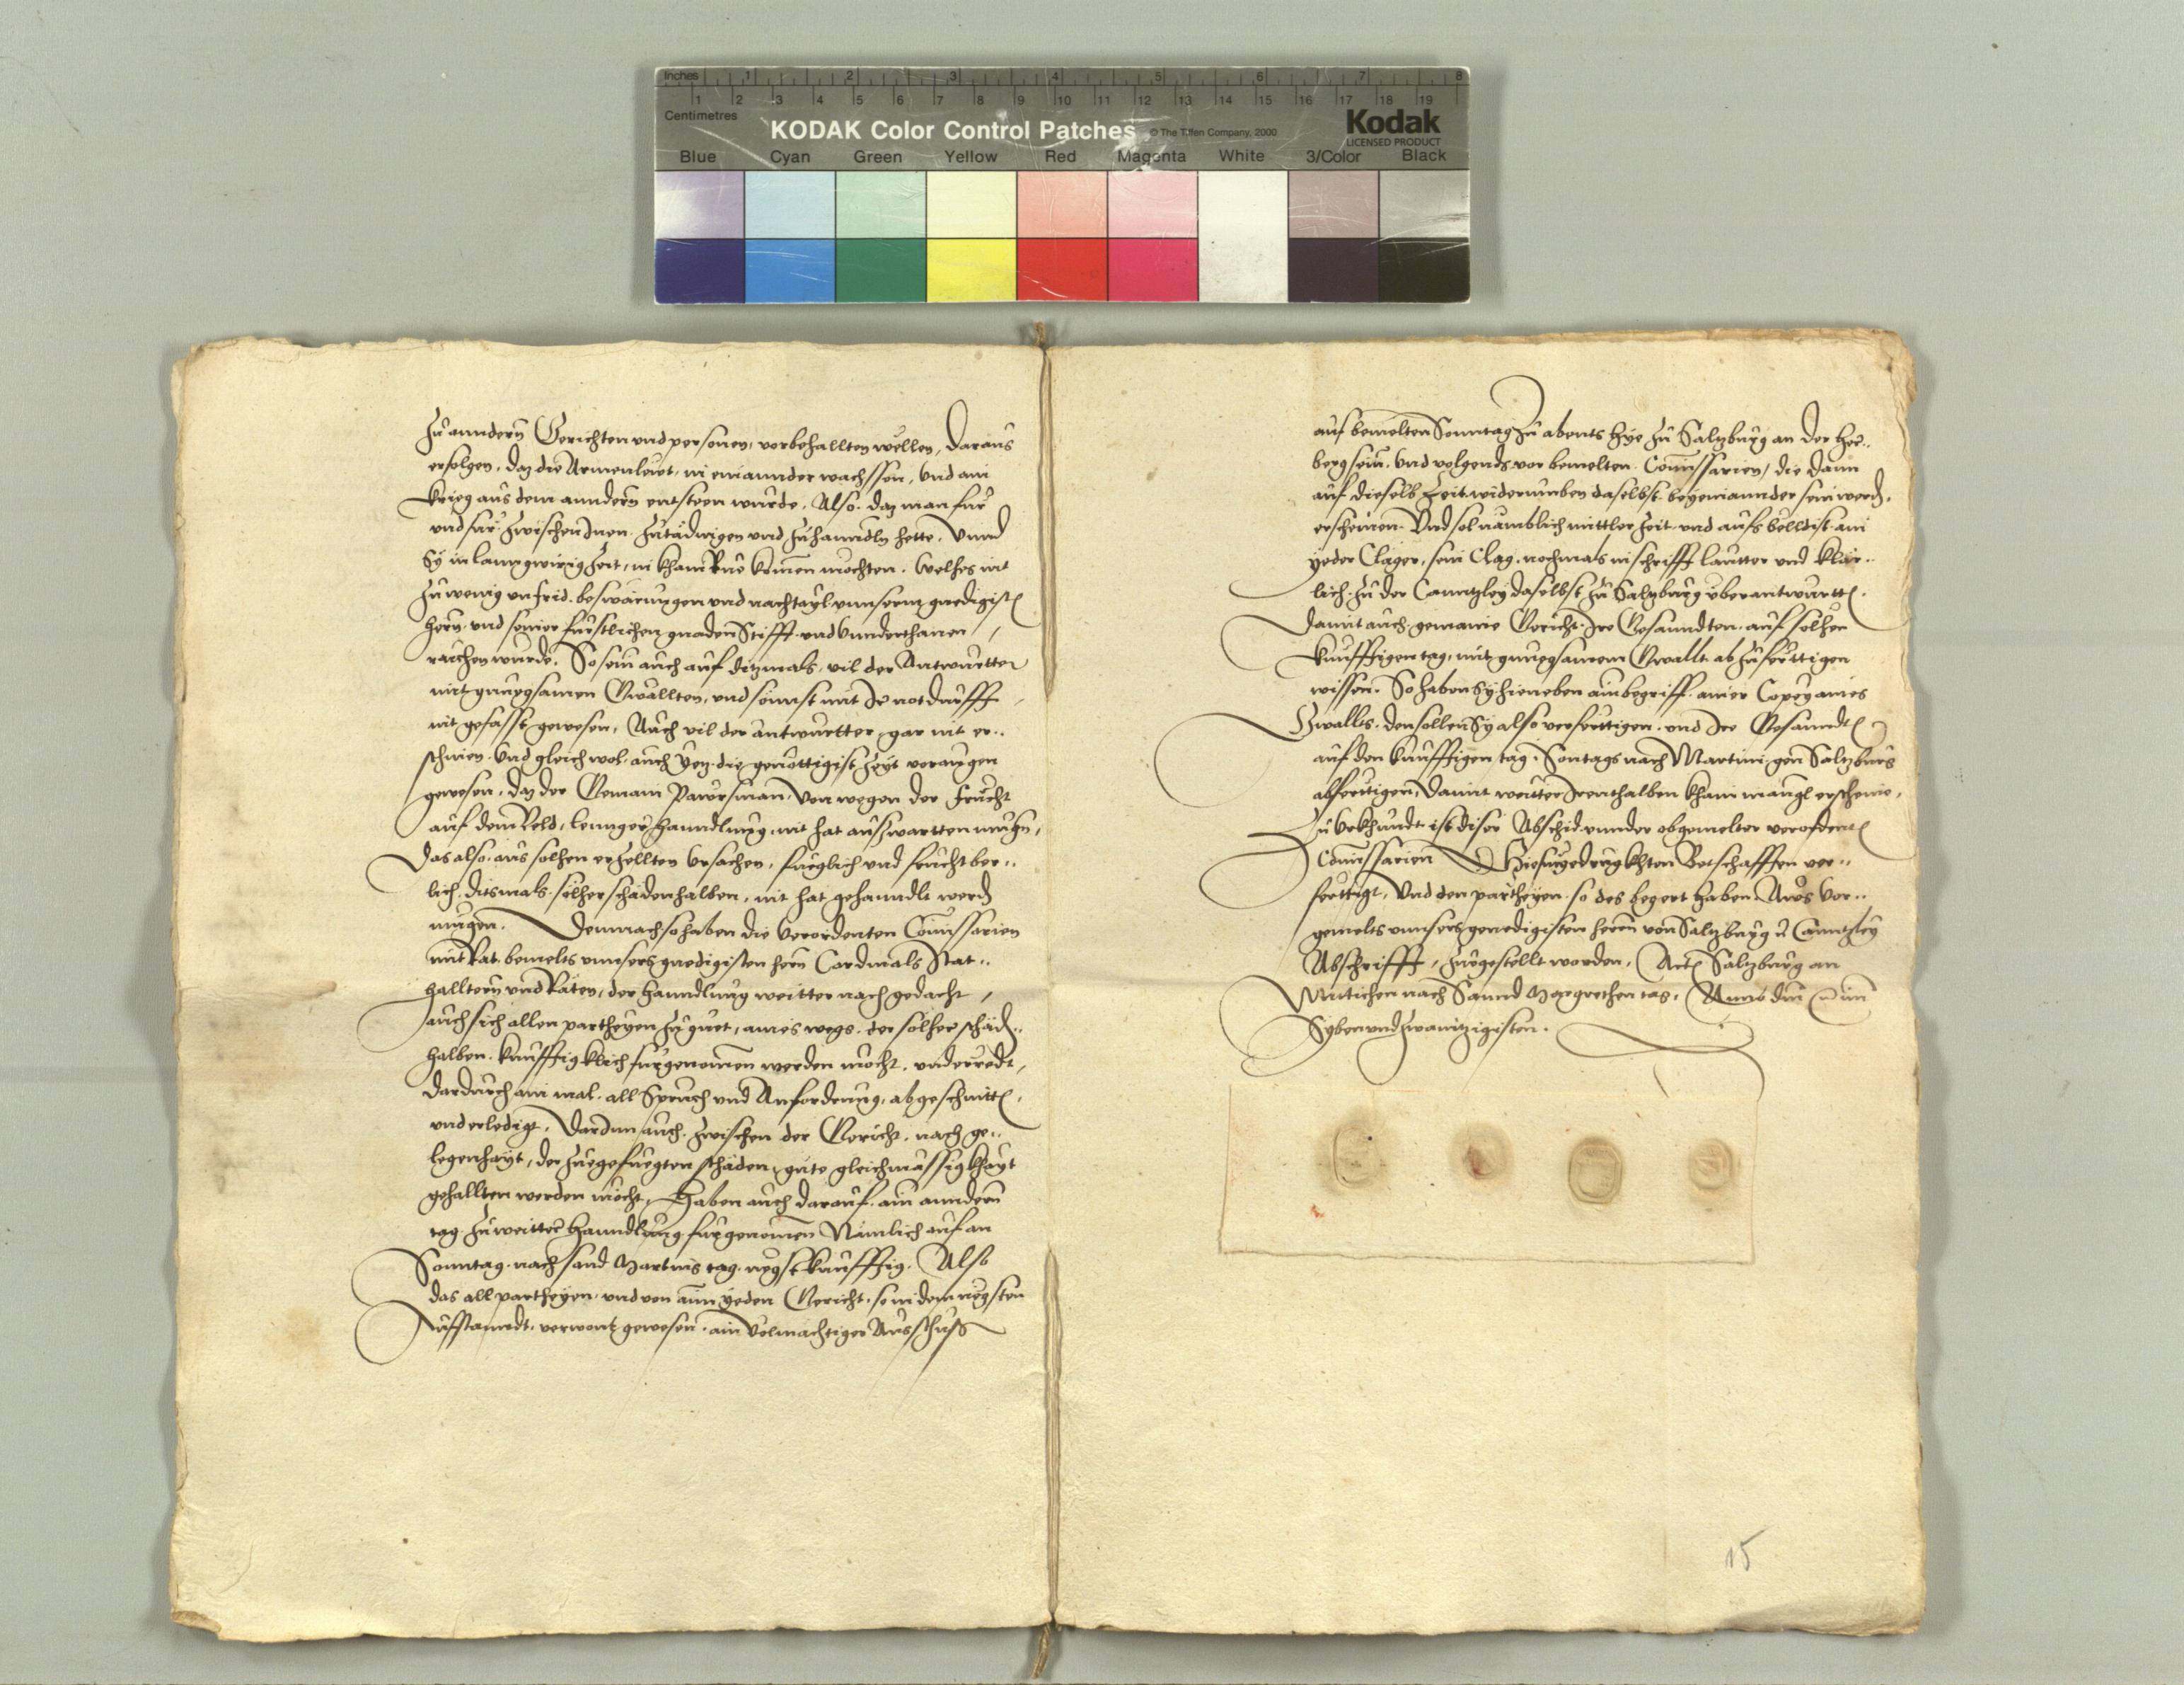 Inches 1 2 3 4 5 6 7 8
1 2 3 4 5 6 7 8 9 10 11 12 13 14 15 16 17 18 19
Centimetres
KODAK Color Control Patches © The Tiffen Company, 2000 Kodak
LICENSED PRODUCT
Blue Cyan Green Yellow Red Magenta White 3/Color Black
zu anndern Gerichten und personen, vorbehallten wellen, daraus
erfolgen, daz die Armenleut, in einannder wachssen, und ain
krieg aus dem anndern entsteen wurde, Also daz man fur
und fur zwischen Inen zutädingen und zuhanndln hette, Unnd
Sy in lanngwirig Zeit, in khain Rue komen mochten. Welhes nit
zu wenig unfrid, beswärungen und nachtayl unnserm gnedigisten
herrn und seiner furstlichen gnaden Stifft und Unnderthanen,
raichen wurde. So sein auch auf ditzmals, vil der Antwurtter
mit gnuegsamen Gwällten, und sonnst mit Ir notdurfft
nit gefasst gewesen, Auch vil der antwurtter, gar nit er..
schinen. Und gleich wol auch yetz die genöttigist Zeyt voraugen
gewesen, daz der Gemain Pawrsman, von wegen der Frücht
auf dem Veld, lennger hanndlung, nit hat auszwartten mugen,
Das also aus solhen erzellten Ursachen, fueglich und fruchtber..
lich, ditsmals solher schädenhalben, nit hat gehanndlt werden
mugen. Demnach so haben die Verordenten Comissarien
mit Rat bemelts unnsers gnedigisten herrn Cardinals Stat..
halltern und Räten, der hanndlung weitter nach gedacht,
auch sich allen partheyen zu guet, aines wegs, der solher schäden..
halben, kunfftigklich furgenomen werden mocht, underredt,
dardurch ain mal all Spruch und Anforderung, abgeschnitten,
und erledigt, Dardurch auch zwischen der Gericht, nach ge..
legenhayt, der zuegefuegten schäden, guete gleichmässigkhayt
gehallten werden möcht, Haben auch darauf ain anndern
tag zu weitter hanndlung furgenomen Nämlich auf an
Sonntag nach sand Martins tag negstkunfftig. Also
das all partheyen, und von ainem yeden Gericht, so in dem negsten
Aufstanndt, verwont gewesen, ain Volmachtiger Ausschuss
auf bemelten Sonntag zu abents hye zu Salzburg an der Her..
berg sein, Und volgends vor bemelten Comissarien, die dann
auf dieselb Zeit widerumben daselbst beyeinannder sein werden,
erscheinen. Und sol nämblich mittler Zeit und aufs belldist ain
yeder Clager, sein Clag, nochmals in schrifft lautter und klär..
lich zu der Canntzley daselbst zu Salzburg uberantwurtten.
Damit auch gemaine Gericht Ire Gesanndten auf solhen
kunfftigen tag, mit gnuegsamem Gwallt abzuferttigen
wissen. So haben Sy hieneben ain begriff ainer Copey aines
Gwallts, den sollen Sy also verferttigen, und Ire Gesanndten
auf den kunfftigen tag Sontags nach Martini gen Salzburg
abferttigen, Damit weitter Irenthalben khain mangl erscheine,
Zu Urkhundt ist diser Abschid unnder obgemelter verordenten
Comissarien Hiefurgedrugkhten Betschafften ver..
ferttigt, Und den partheyen so des begert haben Aus vor..
gemelts unnsers gnedigisten herrn von Salzburg Canntzley
Abschrifft, zuegestellt worden. Actum Salzburg an
Mittichen nach Sannd Margrethen tag, Anno dni im
Sybenundzwaintzigisten.
15